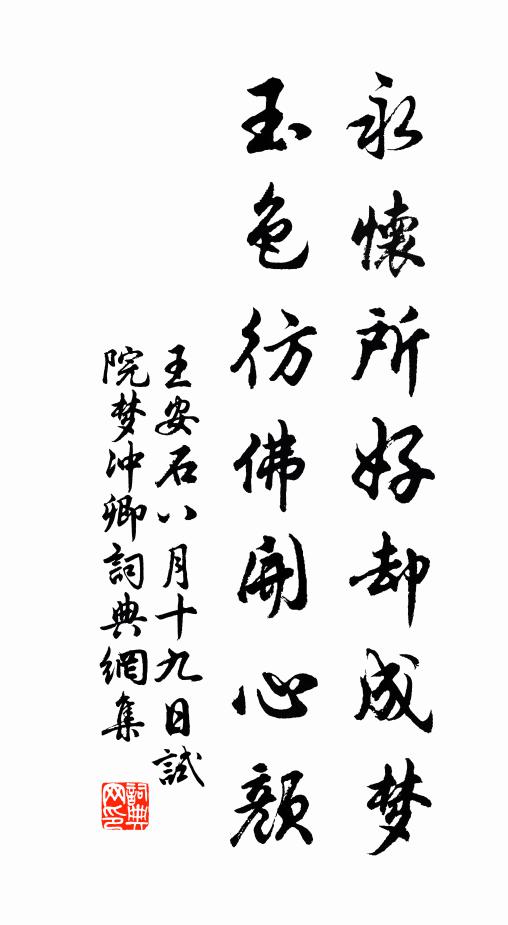 永懷所好却成梦
玉色彷佛開心顏
王安石八月十九日試
院梦冲卿詞典網集
詞典
网印